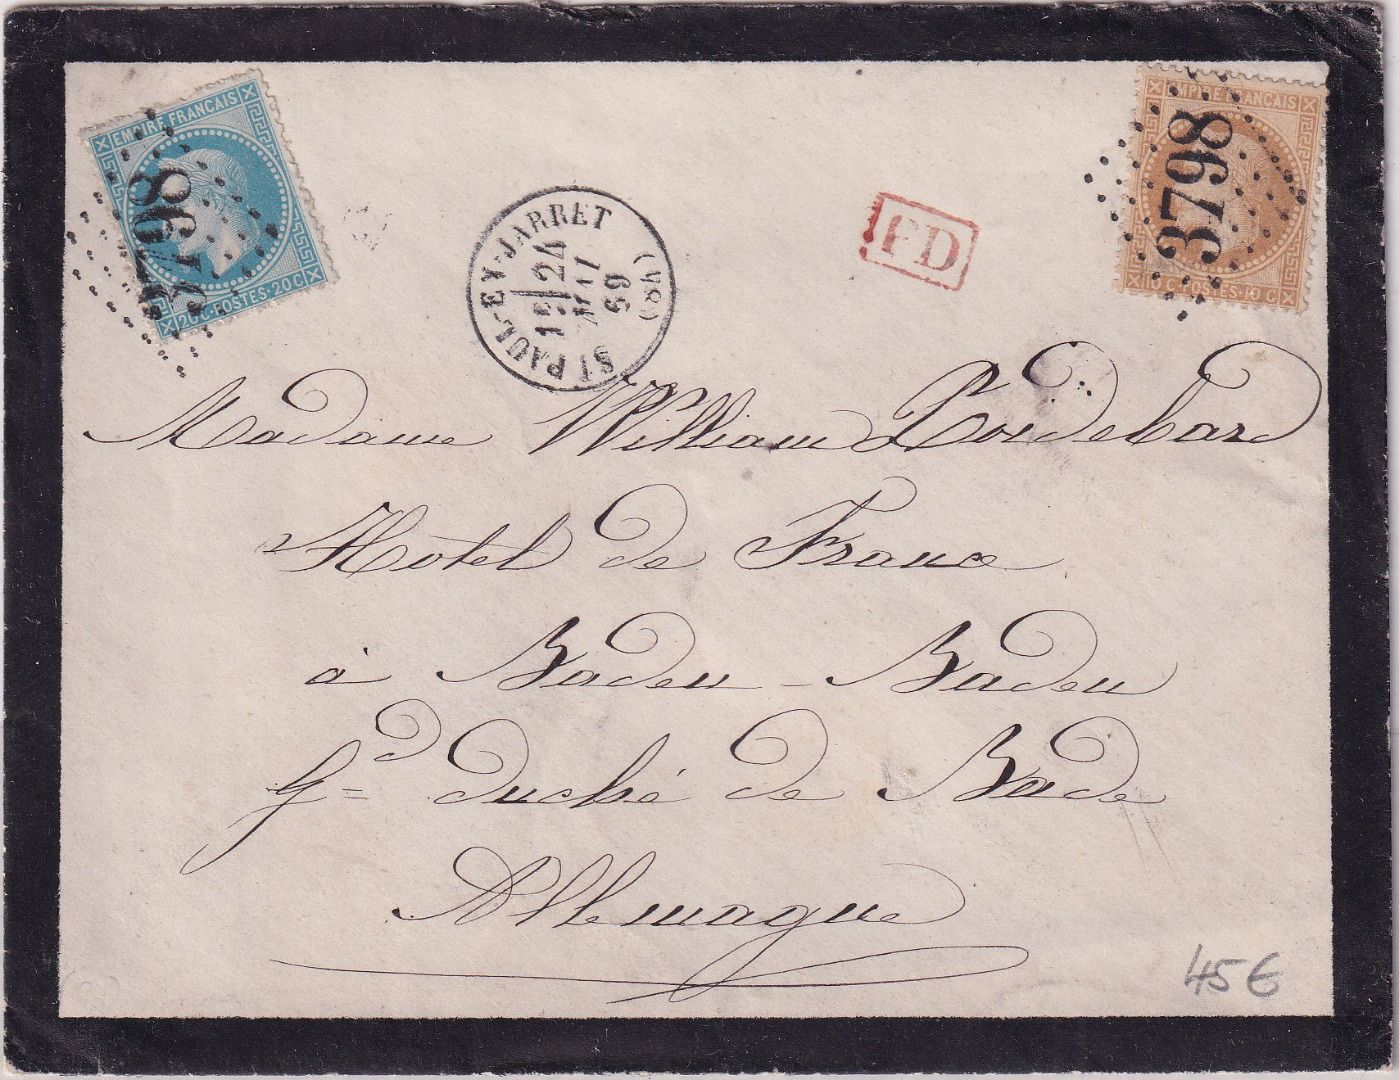 EMPIRE FRANÇAIS
20 C · POSTES · 20 C
3798
ST PAUL-EN-JARRET (84)
24
69
PD
EMPIRE FRANÇAIS
10 C · POSTES · 10 C
3798
Madame William Poidebard
Hôtel de France
à Baden-Baden
Gd Duché de Bade
Allemagne
45€